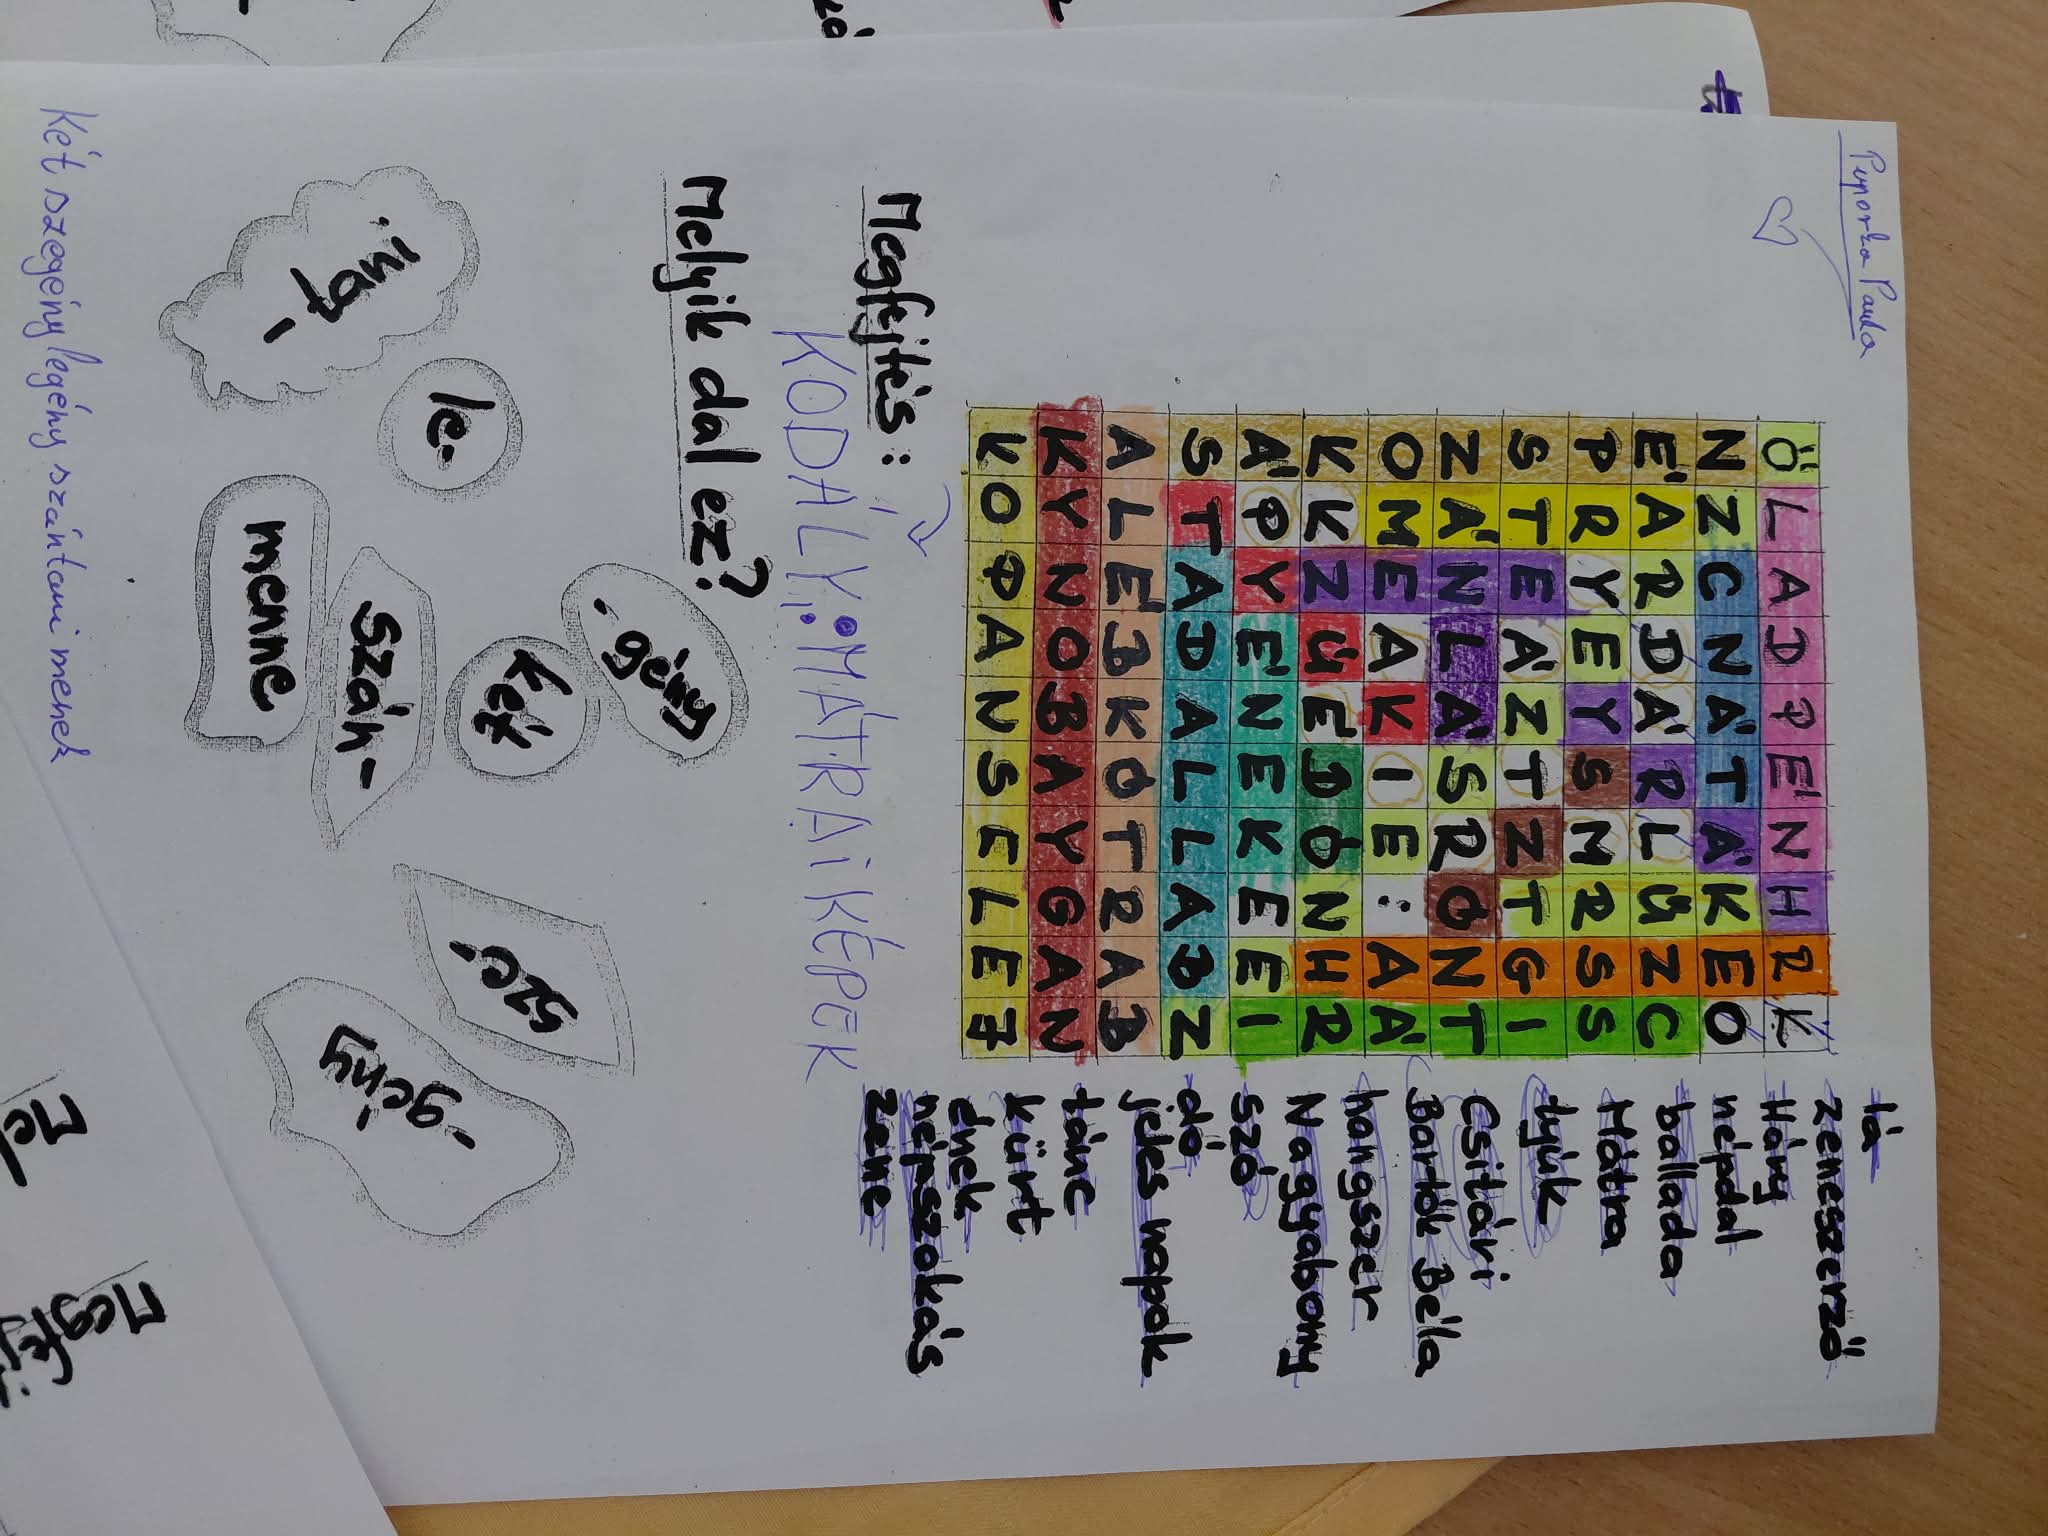 Puporka Paula
Ö L A D P É N H R K
N Z C N Á T Á K E O
É A R D Á R L Ű Z C
P R Y E Y S M R S S
S T E Á Z T Z T G I
Z Á N L Á S R Ó N T
O M E A K I E : A Á
K K Z Ü E D Ó N H R
Á P Y É N E K E E I
S T A D A L L A B Z
A L É B K Ó T R A B
K Y N O B A Y G A N
K O P A N S E L E J
lá
zeneszerző
Háry
népdal
ballada
Mátra
tyúk
Csitári
Bartók Béla
hangszer
Nagyabony
szó
dó
jeles napok
tánc
kürt
ének
népszokás
zene
Megfejtés:
KODÁLY: MÁTRAI KÉPEK
Melyik dal ez?
-gény
két
szán-
menne
le-
-ni
fg-
sze-
-gény
Két szegénylegény szántani menek